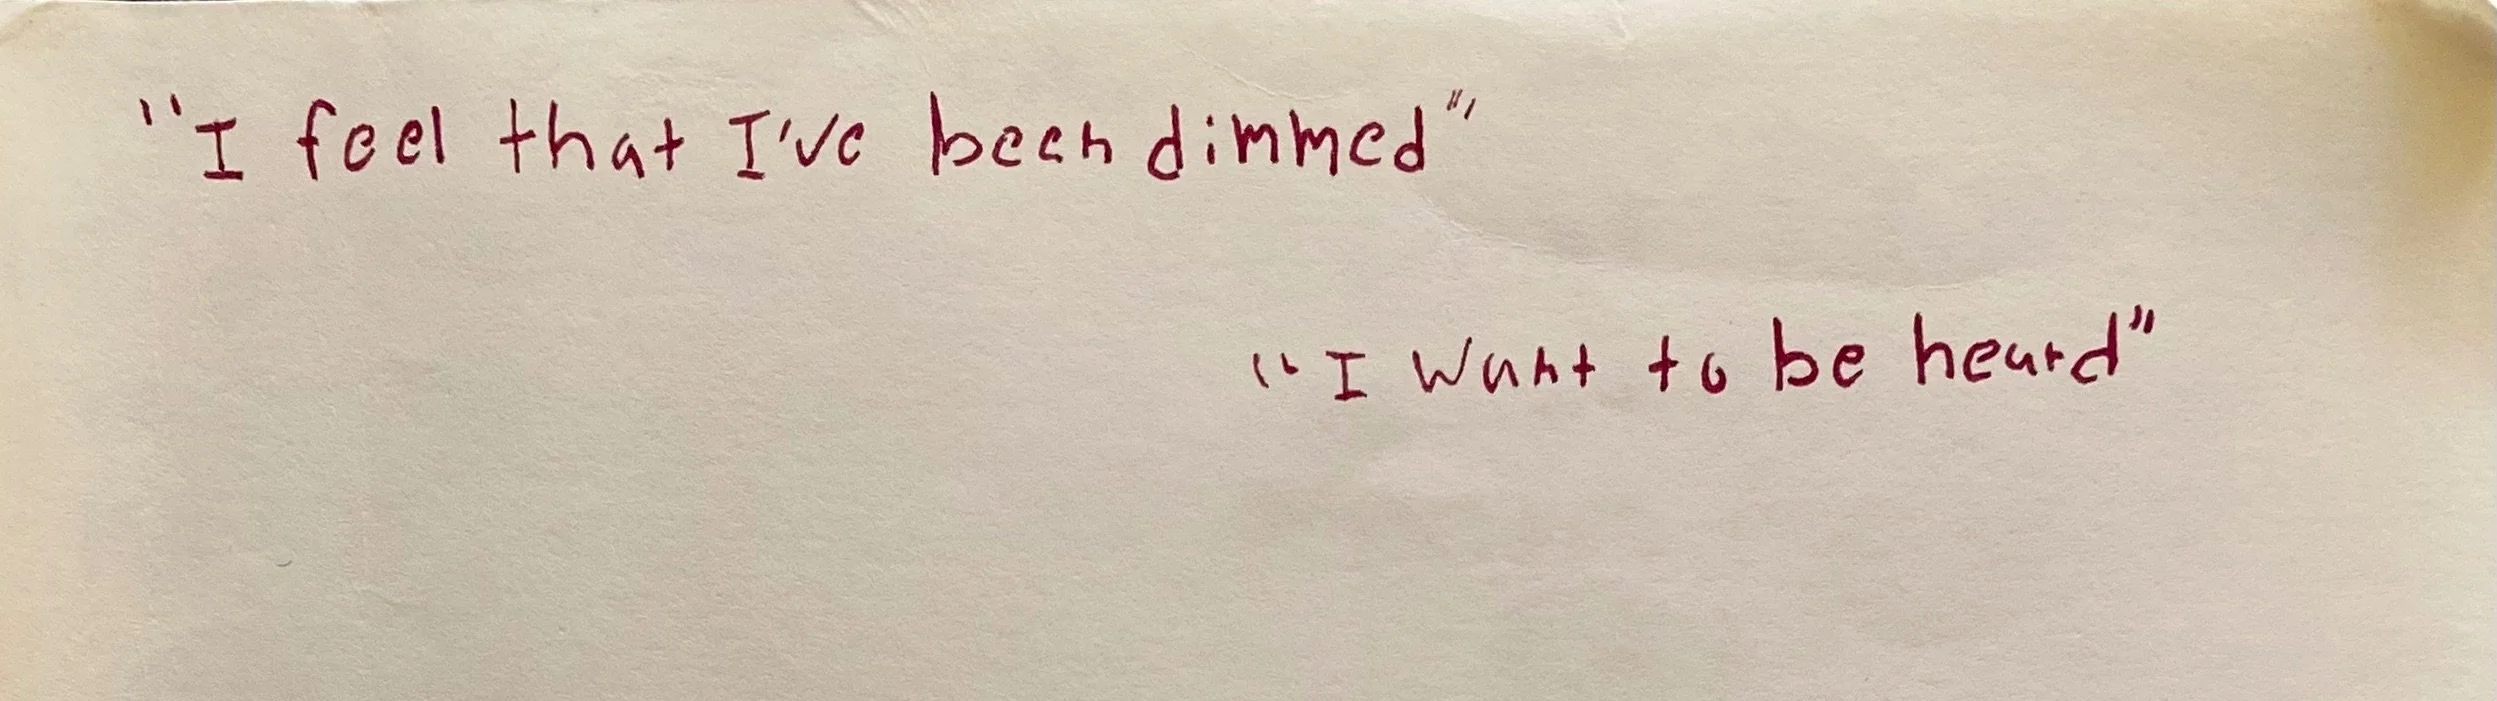 "I feel that I've been dimmed"
"I want to be heard"